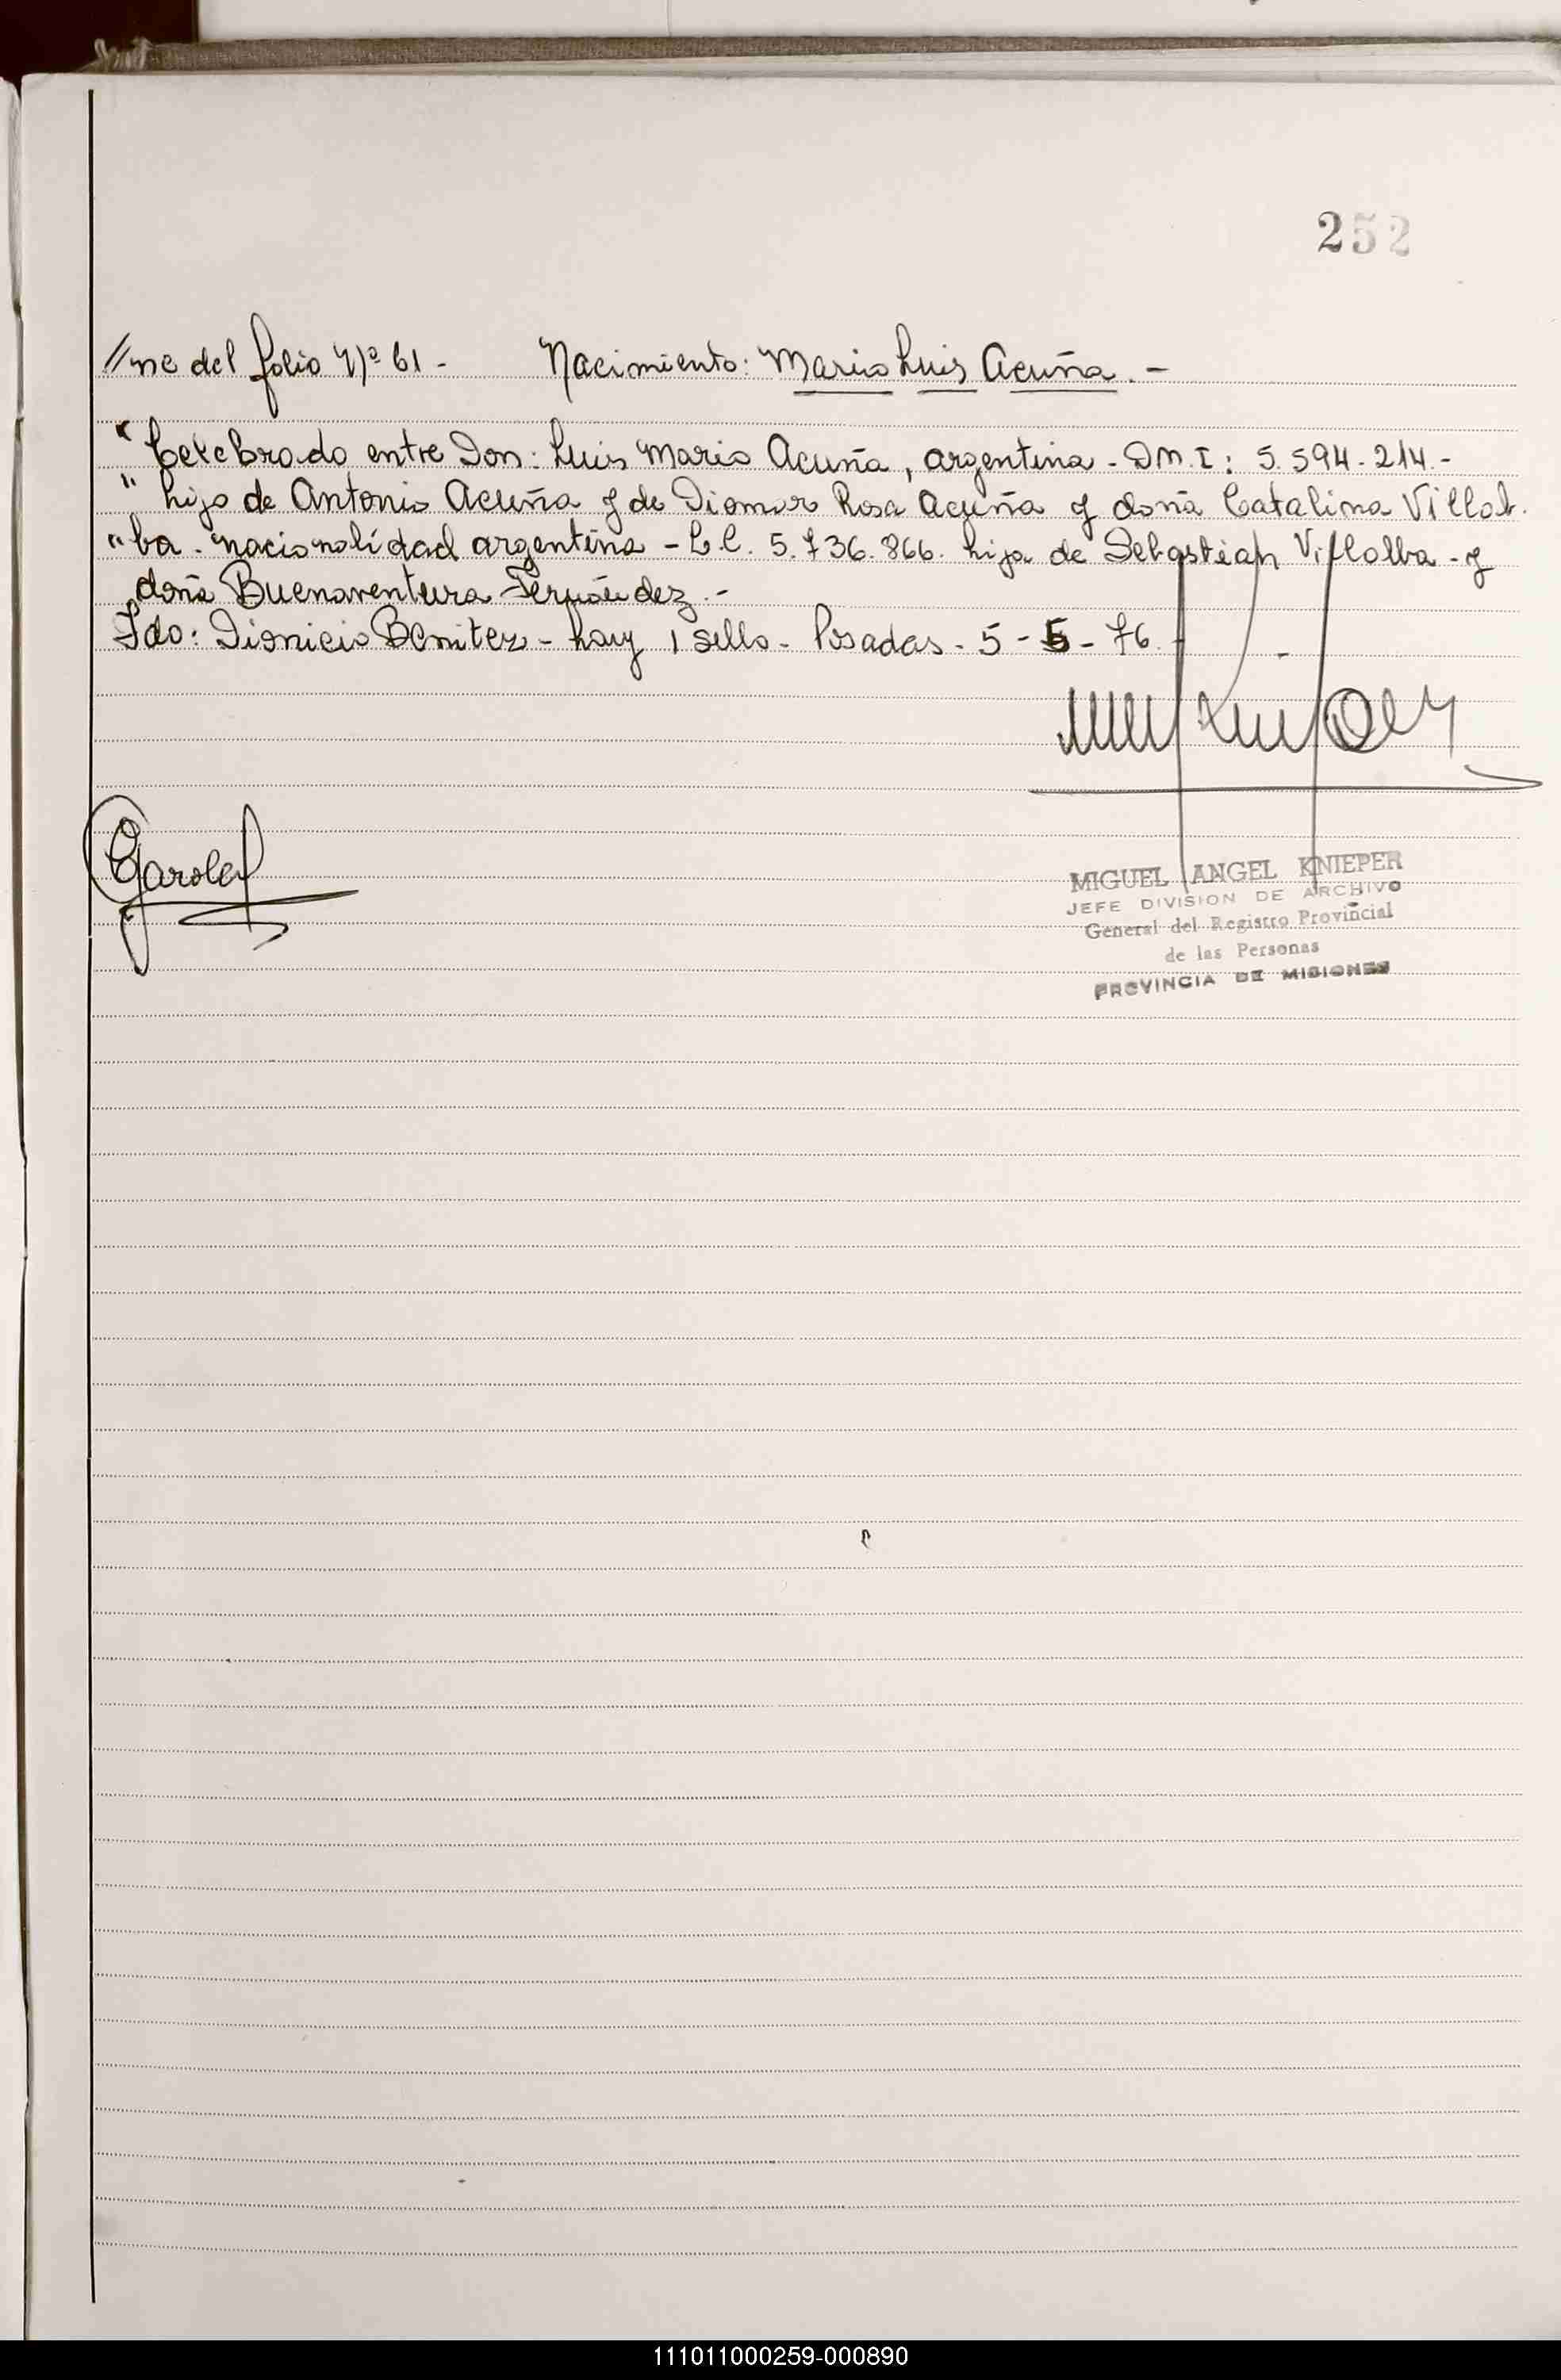 252
//ne del folio Nº 61 - Nacimiento: Mario Luis Acuña. -
" Celebrado entre Don: Luis Mario Acuña, argentina - DM.I: 5.594.214.-
" hijo de Antonio Acuña y de Diomar Rosa Acuña y doña Catalina Villal-
" ba - nacionalidad argentina - L.C. 5.736.866. hija de Sebastian Villalba - y
doña Buenaventura Fernández. -
Fdo: Dionicio Benitez - hay 1 sello - Posadas - 5 - 5 - 76. -
MIGUEL ANGEL KNIEPER
JEFE DIVISION DE ARCHIVO
General del Registro Provincial
de las Personas
PROVINCIA DE MISIONES
111011000259-000890